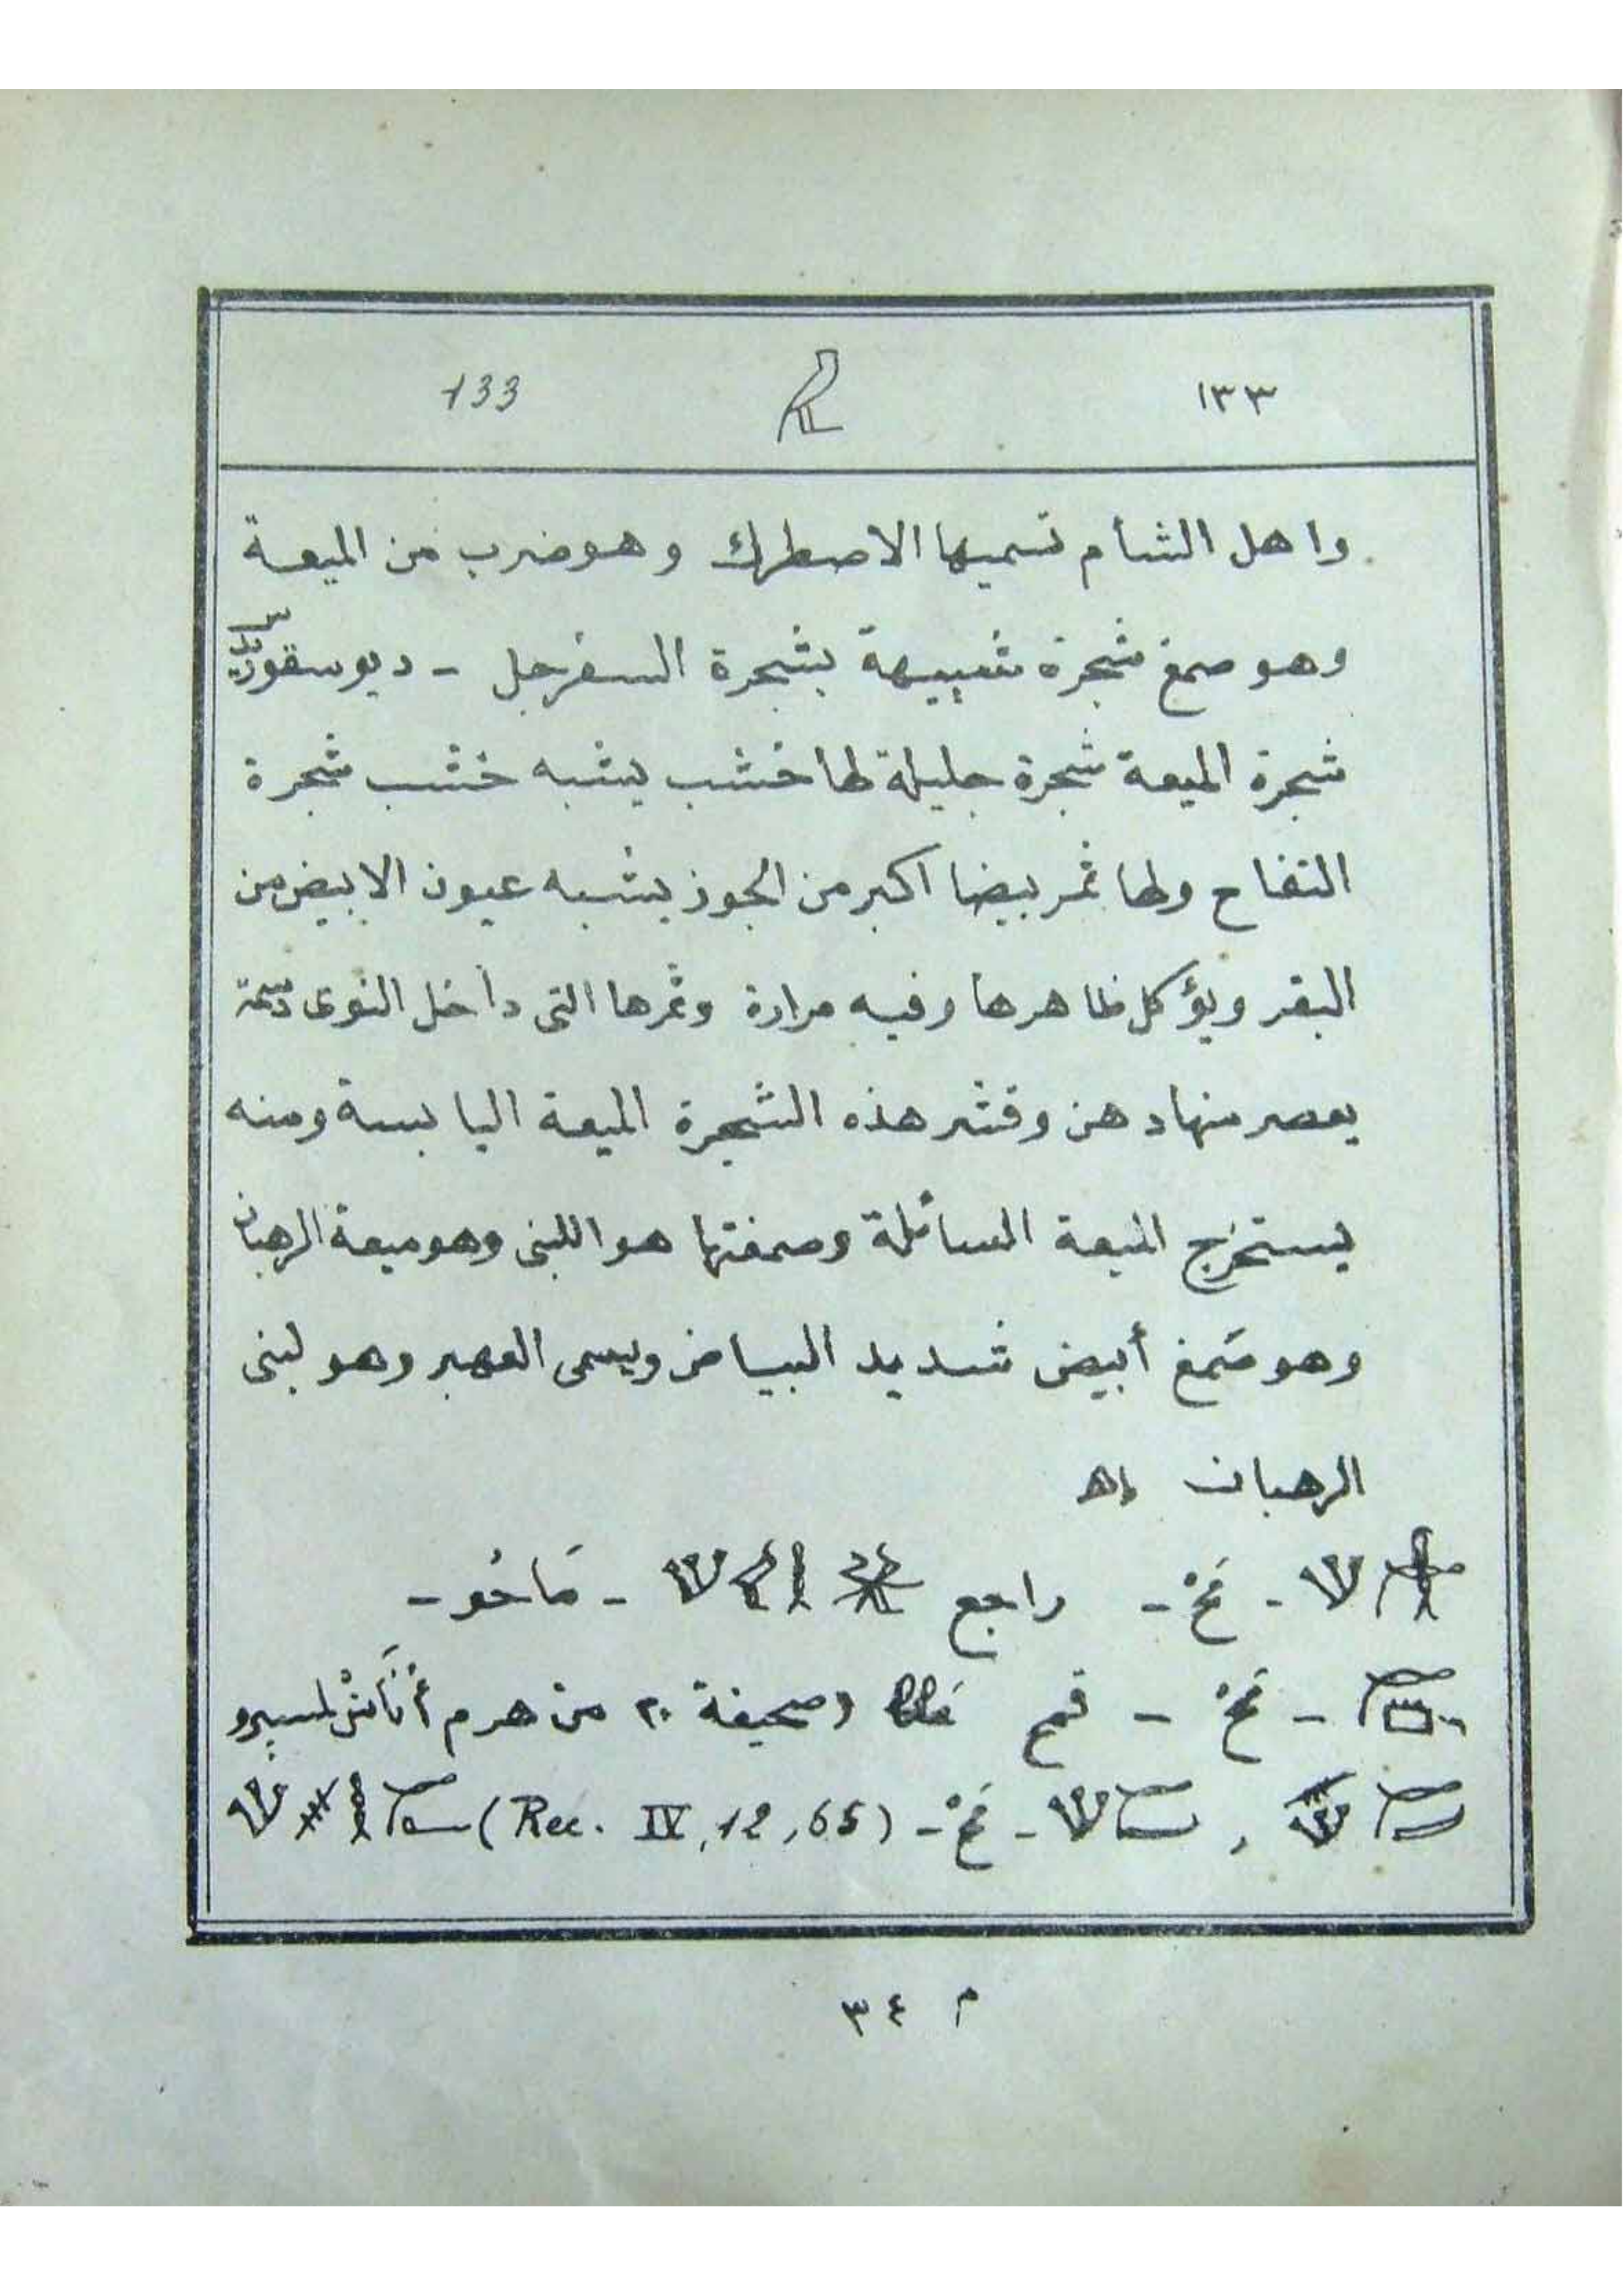 ١٣٣ 133
واهل الشأم تسميها الاصطرك وهو ضرب من الميعة
وهو صمغ شجرة شبيهة بشجرة السفرجل - ديوسقوريدس
شجرة الميعة شجرة جليلة لها خشب يشبه خشب شجرة
التفاح ولها ثمر بيضا اكبر من الجوز يشبه عيون الابيض من
البقر ويؤكل ظاهرها وفيه مرارة وثمرها التى داخل النوى دسمة
يعصر منها دهن وقشر هذه الشجرة الميعة اليابسة ومنه
يستخرج الميعة السائلة وصمغتها هو اللبنى وهو ميعة الرهبان
وهو صَمغ أبيض شديد البياض ويسمى العهبر وهو لبنى
الرهبان اه
- مَخْ - راجع - مَاخُو -
- مَخْ - قمح صحيفة ٢٠ من هرم أُنَاسْ لمسپرو
, - مَخْ - (Rec. IV, 12, 65)
م ٣٤